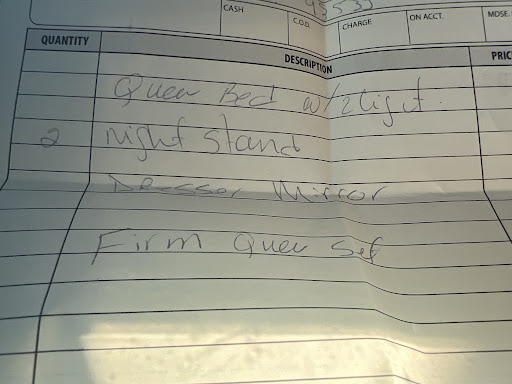 CASH C.O.D. CHARGE ON ACCT. MDSE.
QUANTITY DESCRIPTION PRIC
Queen Bed w/2 light.
2 night stand
Dresser Mirror
Firm Queen Set